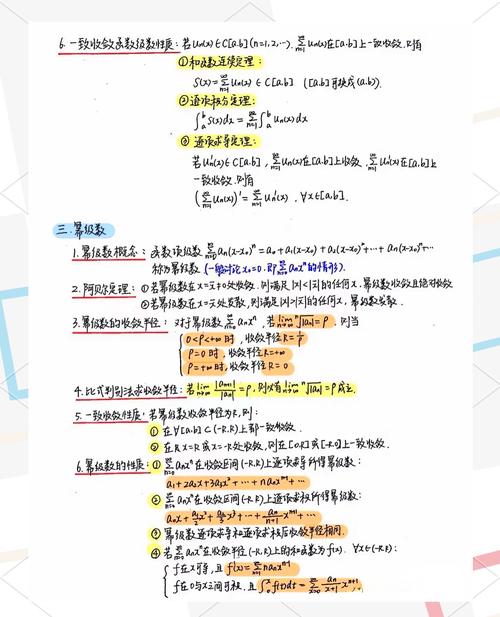 6. 一致收敛函数级数性质：若Un(x)∈C[a.b](n=1,2,…). ∑_{n=1}^{∞}Un(x)在[a.b]上一致收敛.则有
①和函数连续定理：
S(x)=∑_{n=1}^{∞}Un(x)∈C[a.b] ([a.b]可换成(a.b)).
②逐项积分定理：
∫_a^b S(x)dx=∑_{n=1}^{∞}∫_a^b Un(x)dx
③逐项求导定理：
若U'n(x)∈C[a.b], ∑_{n=1}^{∞}Un(x)在[a.b]上收敛, ∑_{n=1}^{∞}U'n(x)在[a.b]上
一致收敛.则有
(∑_{n=1}^{∞}Un(x))'=∑_{n=1}^{∞}U'n(x), ∀x∈[a.b].
三.幂级数
1.幂级数概念：函数项级数∑_{n=0}^{∞}an(x-x0)^n=a0+a1(x-x0)+a2(x-x0)^2+…+an(x-x0)^n+…
称为幂级数(一般讨论x0=0.即∑_{n=0}^{∞}anx^n的情形).
2.阿贝尔定理：①若幂级数在x=x̄≠0处收敛.则满足|x|<|x̄|的任何x.幂级数收敛且绝对收敛
②若幂级数在x=x̄处发散,则满足|x|>|x̄|的任何x,幂级数发散.
3.幂级数的收敛半径：对于幂级数∑_{n=0}^{∞}anx^n,若lim_{n→∞}ⁿ√|an|=ρ.则当
0<ρ<+∞时,收敛半径R=1/ρ
ρ=0时,收敛半径R=+∞
ρ=+∞时,收敛半径R=0
4.比式判别法求收敛半径：若lim_{n→∞}|an+1|/|an|=ρ,则必有lim_{n→∞}ⁿ√|an|=ρ成立.
5.一致收敛性质：若幂级数收敛半径为R,则：
①在∀[a.b]⊂(-R.R)上都一致收敛.
②在R x=R或x=-R处收敛,则在[0.R]或[-R.0]上一致收敛.
6.幂级数的性质：①∑_{n=0}^{∞}anx^n在收敛区间(-R.R)上逐项求导所得幂级数：
a1+2a2x+3a3x^2+…+nanx^{n-1}+…
②∑_{n=0}^{∞}anx^n在收敛区间(-R.R)上逐项求积所得幂级数：
a0x+a1/2x^2+a2/3x^3+…+an/n+1x^{n+1}+…
③幂级数逐项求导和逐项求积后收敛半径相同.
④若∑_{n=0}^{∞}anx^n在收敛半径(-R.R)上的和函数为f(x). ∀x∈(-R.R):
f在x可导,且f'(x)=∑_{n=1}^{∞}nanx^{n-1}
f在0与x之间可积,且∫_0^x f(t)dt=∑_{n=0}^{∞}an/n+1x^{n+1}.